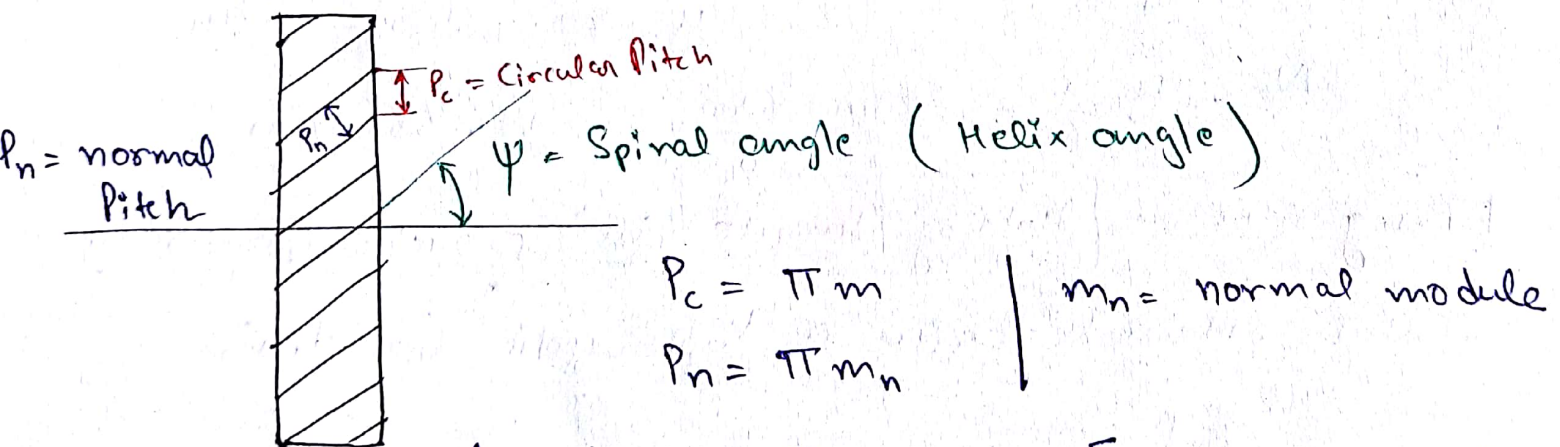 Pc = Circular Pitch
Pn
Pn = normal Pitch
ψ = Spiral angle ( Helix angle )
Pc = π m
Pn = π mn
mn = normal module